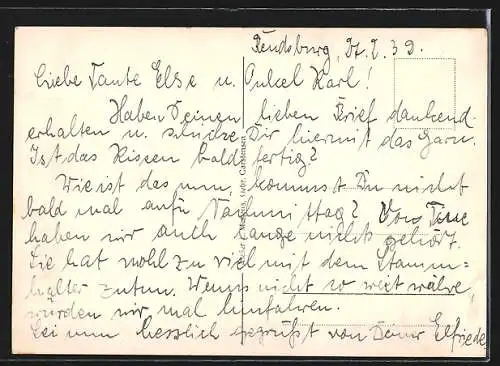 Rendsburg, 27.2.39.
Liebe Tante Else u. Onkel Karl!
Haben Deinen lieben Brief dankend
erhalten u. schicke Dir hiermit das Garn.
Ist das Kissen bald fertig?
Wie ist das nun, kommst Du nicht
bald mal auf'n Nachmittag? Von Tine
haben wir auch lange nichts gehört.
Sie hat wohl zu viel mit dem Stamm-
halter zutun. Wenns nicht so weit wäre
würden wir mal hinfahren.
Sei nun herzlich gegrüßt von Deiner Elfriede.
Gebr. Carstensen